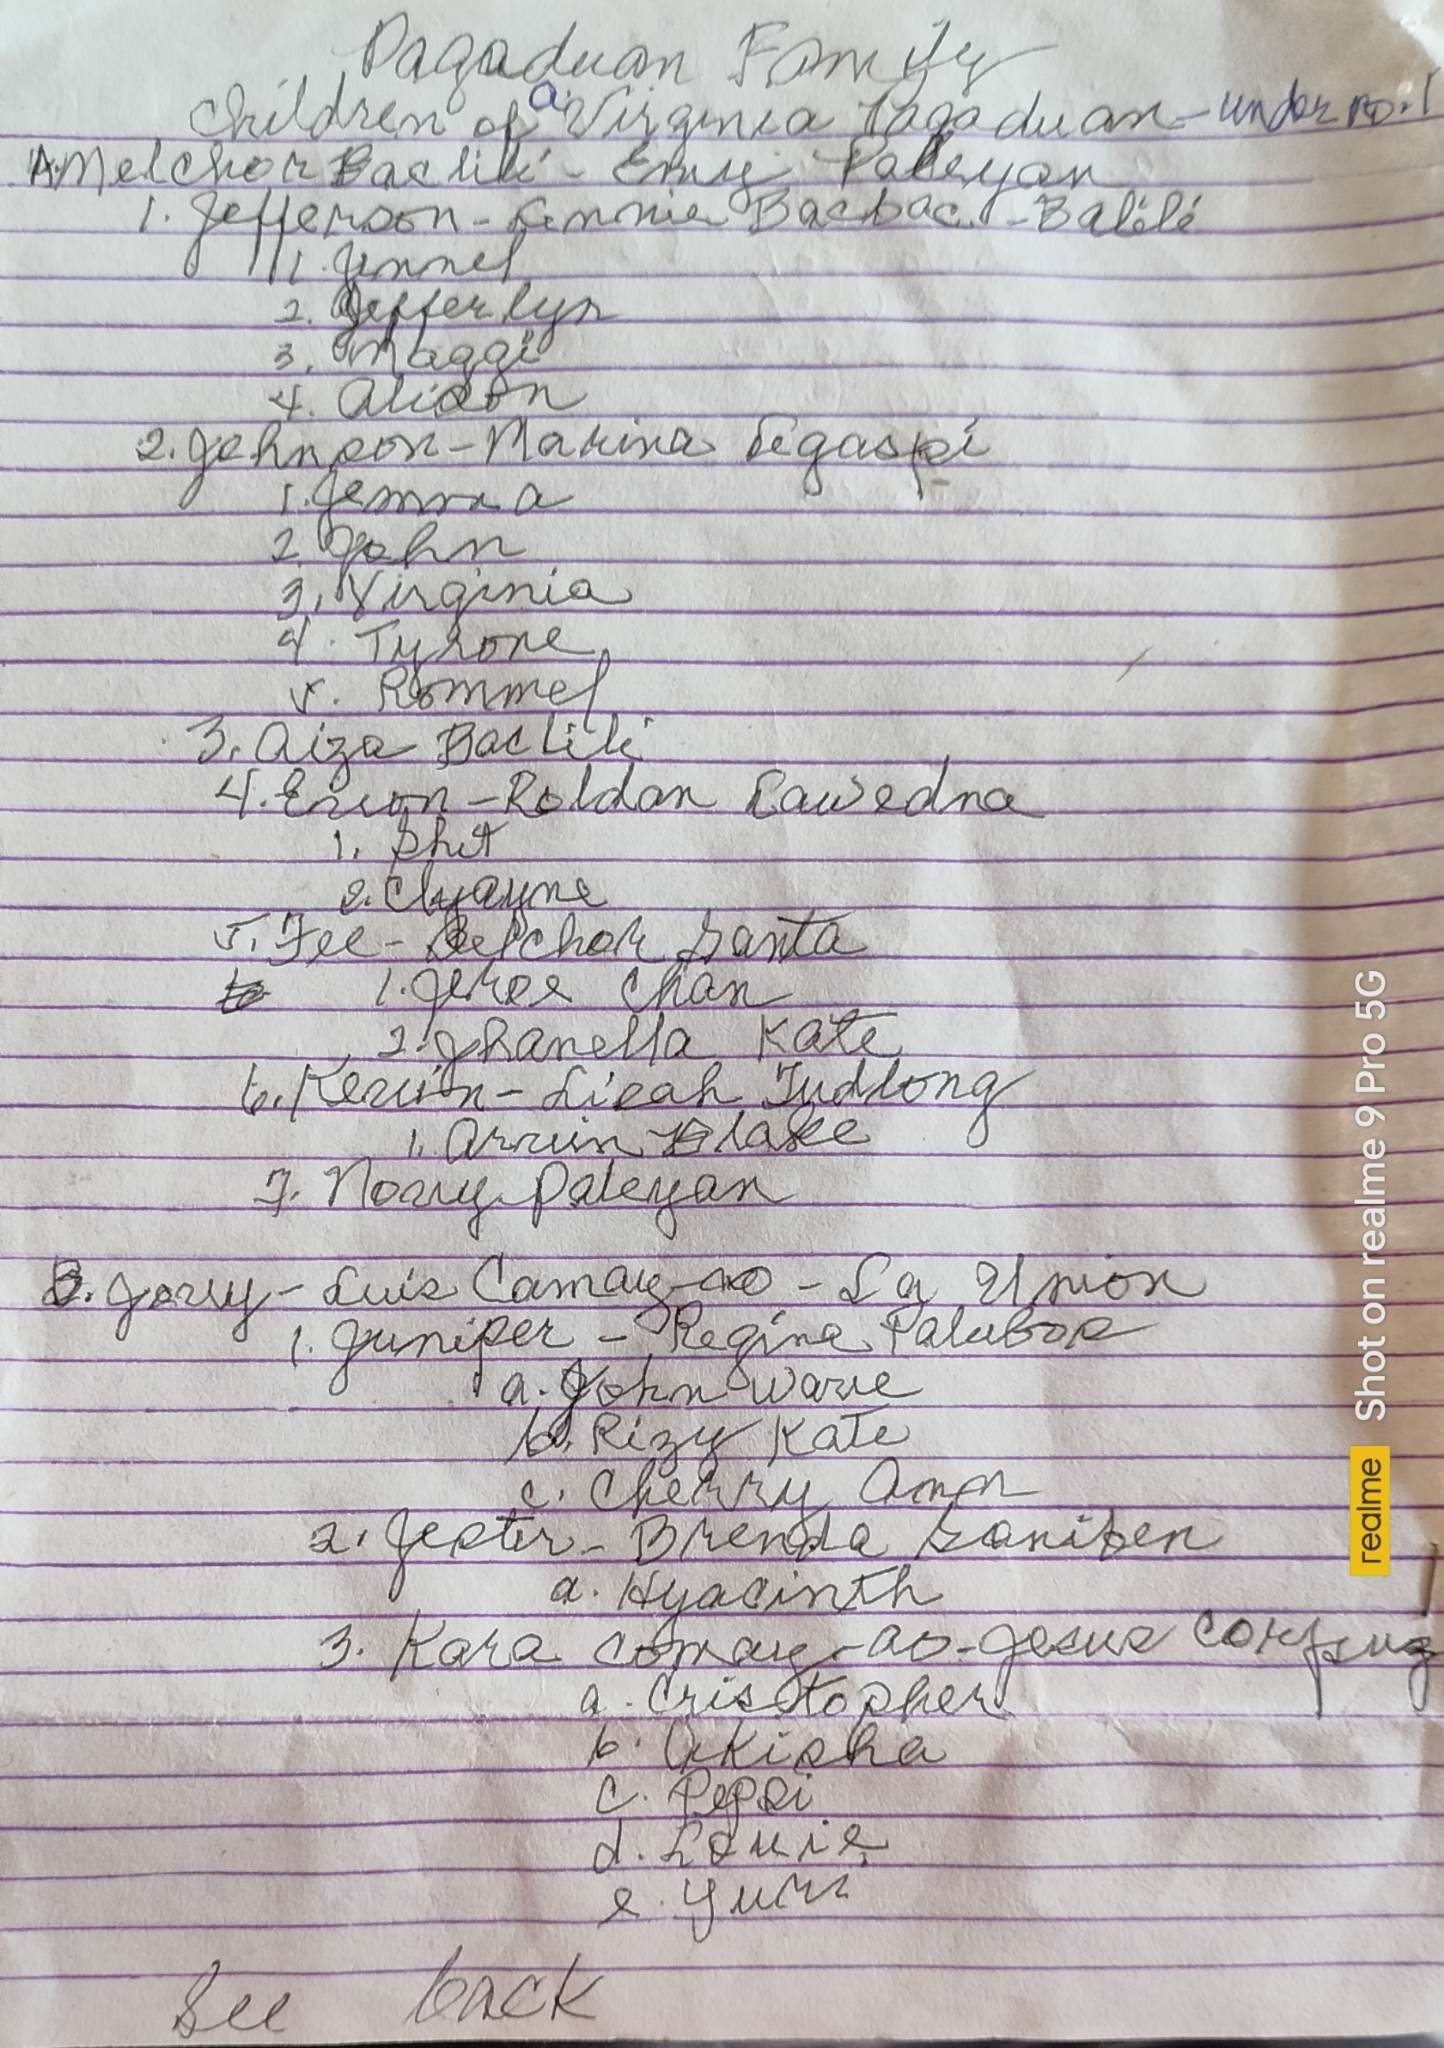 Pagaduan Family
Children of a. Virginia Pagaduan - under no. 1
A. Melchor Baclili - Emy Paleyan
1. Jefferson - Lennie Bacbac - Balili
1. Jennel
2. Jefferlyn
3. Maggi
4. Alison
2. Johnson - Marina Legaspi
1. Jemma
2. John
3. Virginia
4. Tyrone
5. Rommel
3. Aiza Baclili
4. - Roldan Lawedna
1.
2. Clyayne
5. Fee - Belchor Santa
1. Jeroe Chan
2. Jhanella Kate
6. Kervin - Licah Tudlong
1. Arvin Blake
7. Novy Paleyan
B. Jovy - Luis Camay-ao - La Union
1. Juniper - Regina Palubos
a. John Wave
b. Rizy Kate
c. Cherry Ann
2. Jester - Brenda
a. Hyacinth
3. Kara Comay-ao - Jesus
a. Cristopher
b. Akisha
c. Pepsi
d. Louie
e. Yuri
See back
Shot on realme 9 Pro 5G
realme